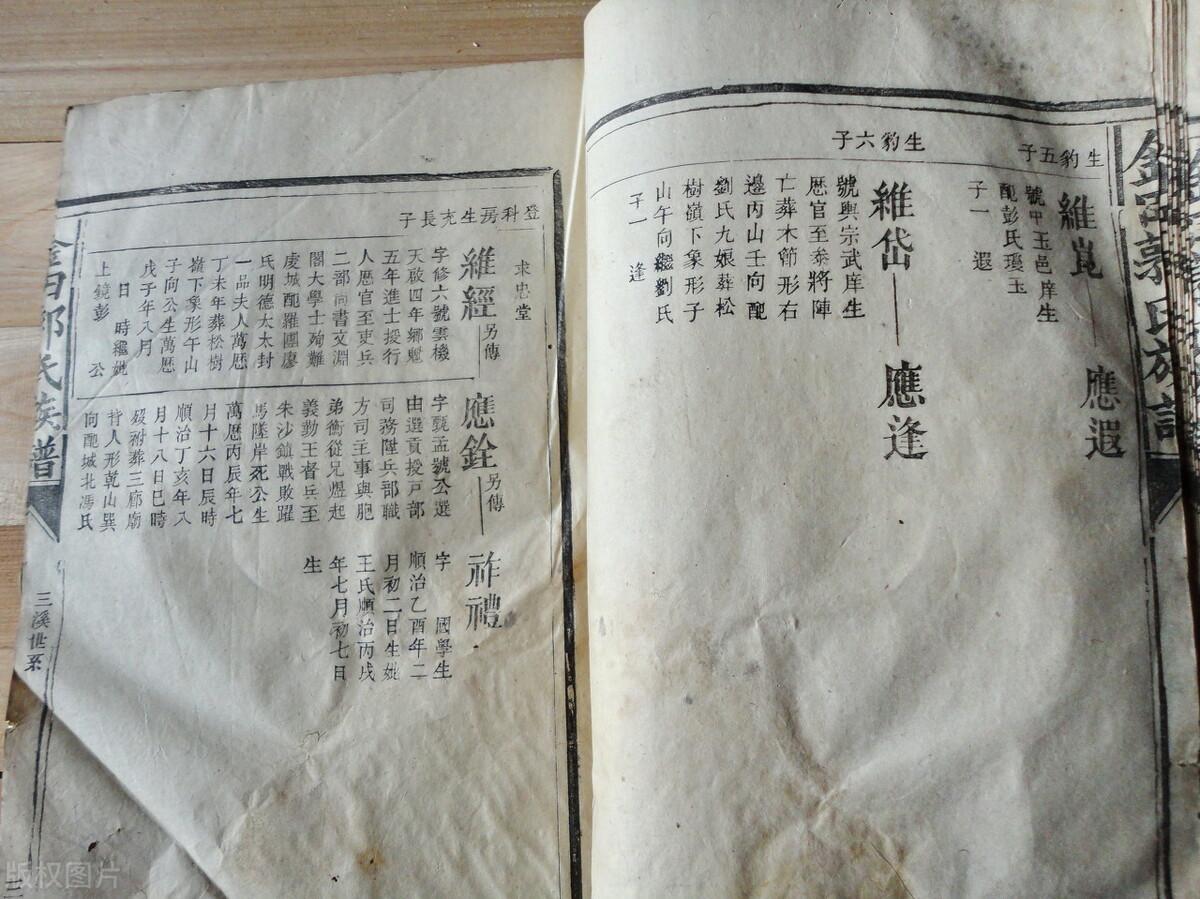 氏族譜
生豹五子
維崑
應遐
號中玉邑庠生
配彭氏瓊玉
子一 遐
生豹六子
維岱
應逢
號輿宗武庠生
歷官至泰將陣
亡葬木節形右
邊丙山壬向配
劉氏九娘葬松
樹嶺下象形子
山午向繼劉氏
子一 逢
求忠堂
登科房生充長子
維經另傳
字修六號雲機
天啟四年鄉魁
五年進士授行
人歷官至吏兵
二部尚書文淵
閣大學士殉難
虔城配羅團廖
氏明德太太封
一品夫人萬歷
丁未年葬松樹
嶺下象形午山
子向公生萬歷
戊子年八月
日 時繼妣
上鏡彭 公
應銓另傳
字 孟號公選
由選貢授戸部
司務陞兵部職
方司主事與胞
弟衡從兄煜起
義勤王督兵至
朱沙鎮戰敗躍
馬墜岸死公生
萬歷丙辰年七
月十六日辰時
順治丁亥年八
月十八日巳時
歿祔葬三廊廟
恃人形乾山巽
向配城北馮氏
祚禮
字 國學生
順治乙酉年二
月初二日生妣
王氏順治丙戌
年七月初七日
生
郭氏族譜
三溪世系
版权图片